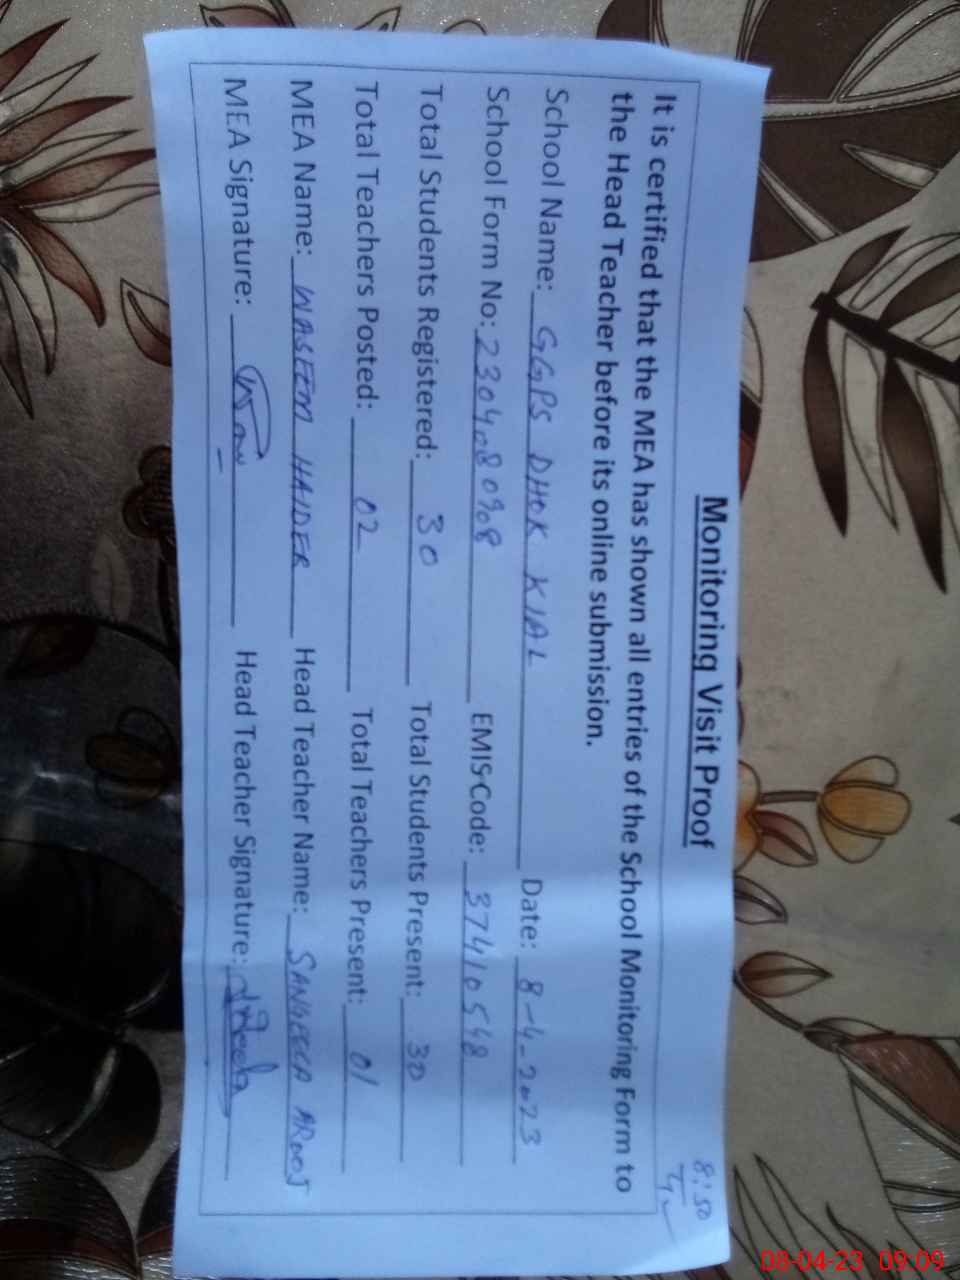 8:50
Monitoring Visit Proof
It is certified that the MEA has shown all entries of the School Monitoring Form to
the Head Teacher before its online submission.
School Name: GGPS DHOK KIAL Date: 8-4-2023
School Form No: 2304080908 EMIS Code: 37410548
Total Students Registered: 30 Total Students Present: 30
Total Teachers Posted: 02 Total Teachers Present: 01
MEA Name: WASEEM HAIDER Head Teacher Name: AROOJ
MEA Signature: Head Teacher Signature:
08-04-23 09:09